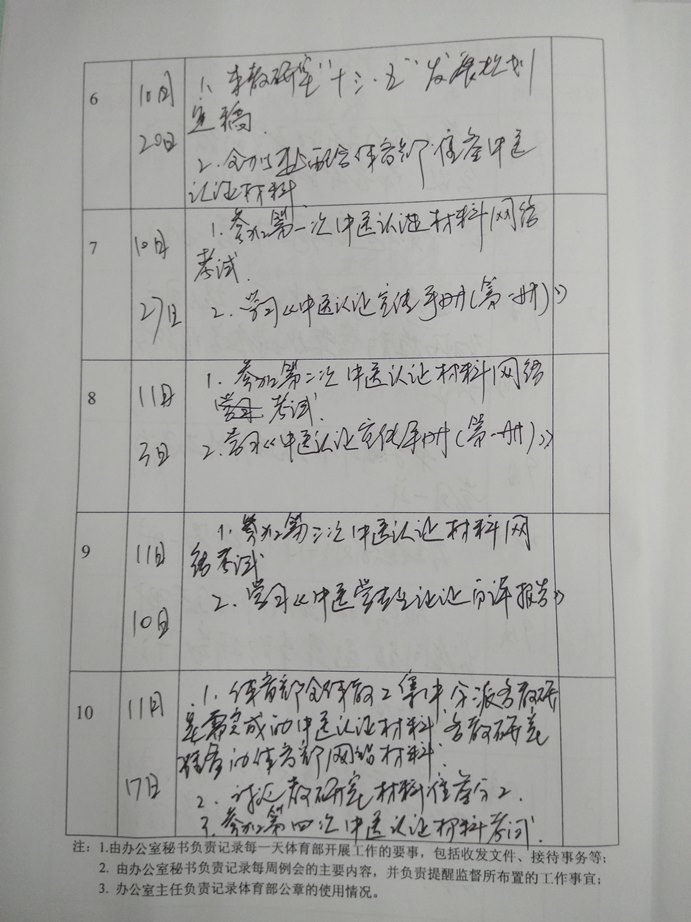 6
10月
20日
1、本教研室"十三·五"发展规划
定稿.
2. 全力以赴配合体育部准备中医
认证材料
7
10月
27日
1. 参加第一次中医认证材料网络
考试.
2. 学习《中医认证宣传手册(第一册)》
8
11月
3日
1. 参加第二次中医认证材料网络
考试.
2. 学习《中医认证宣传手册(第一册)》
9
11月
10日
1. 参加第三次中医认证材料网
络考试
2. 学习《中医学专业认证自评报告》
10
11月
17日
1. 体育部全体教工集中分派各教研
室需完成的中医认证材料.各教研室
准备的体育部网络材料.
2. 讨论教研室材料准备分工.
3. 参加第四次中医认证材料考试.
注：1.由办公室秘书负责记录每一天体育部开展工作的要事，包括收发文件、接待事务等；
2. 由办公室秘书负责记录每周例会的主要内容，并负责提醒监督所布置的工作事宜；
3. 办公室主任负责记录体育部公章的使用情况。